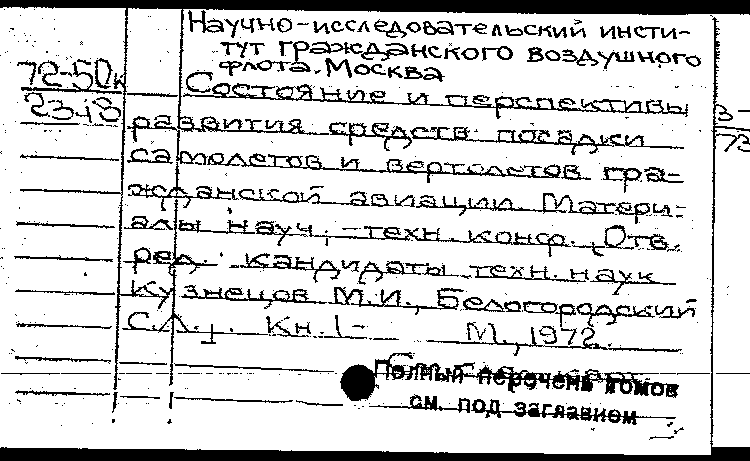 Научно-исследовательский инсти-
тут гражданского воздушного
флота. Москва
72-50к
23.18
Состояние и перспективы
развития средств посадки
самолетов и вертолетов гра-
жданской авиации. Матери-
алы науч.-техн. конф. Отв.
ред. кандидаты техн. наук
Кузнецов М.И., Белогородский
С.Л. Кн. 1-
М., 1972.
Полный перечень томов
см. под заглавием
3-
73